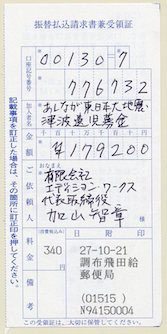 振替払込請求書兼受領証
00130-7
776732
あしなが東日本大地震・
津波遺児基金
千 百 十 万 千 百 十 円
¥179200
おなまえ
有限会社
エディション・ワークス
代表取締役
加山智章
料金
340円
備考
日附印
27-10-21
調布飛田給
郵便局
(01515)
N94150004
この受領証は、大切に保管してください。
記載事項を訂正した場合は、その箇所に訂正印を押してください。